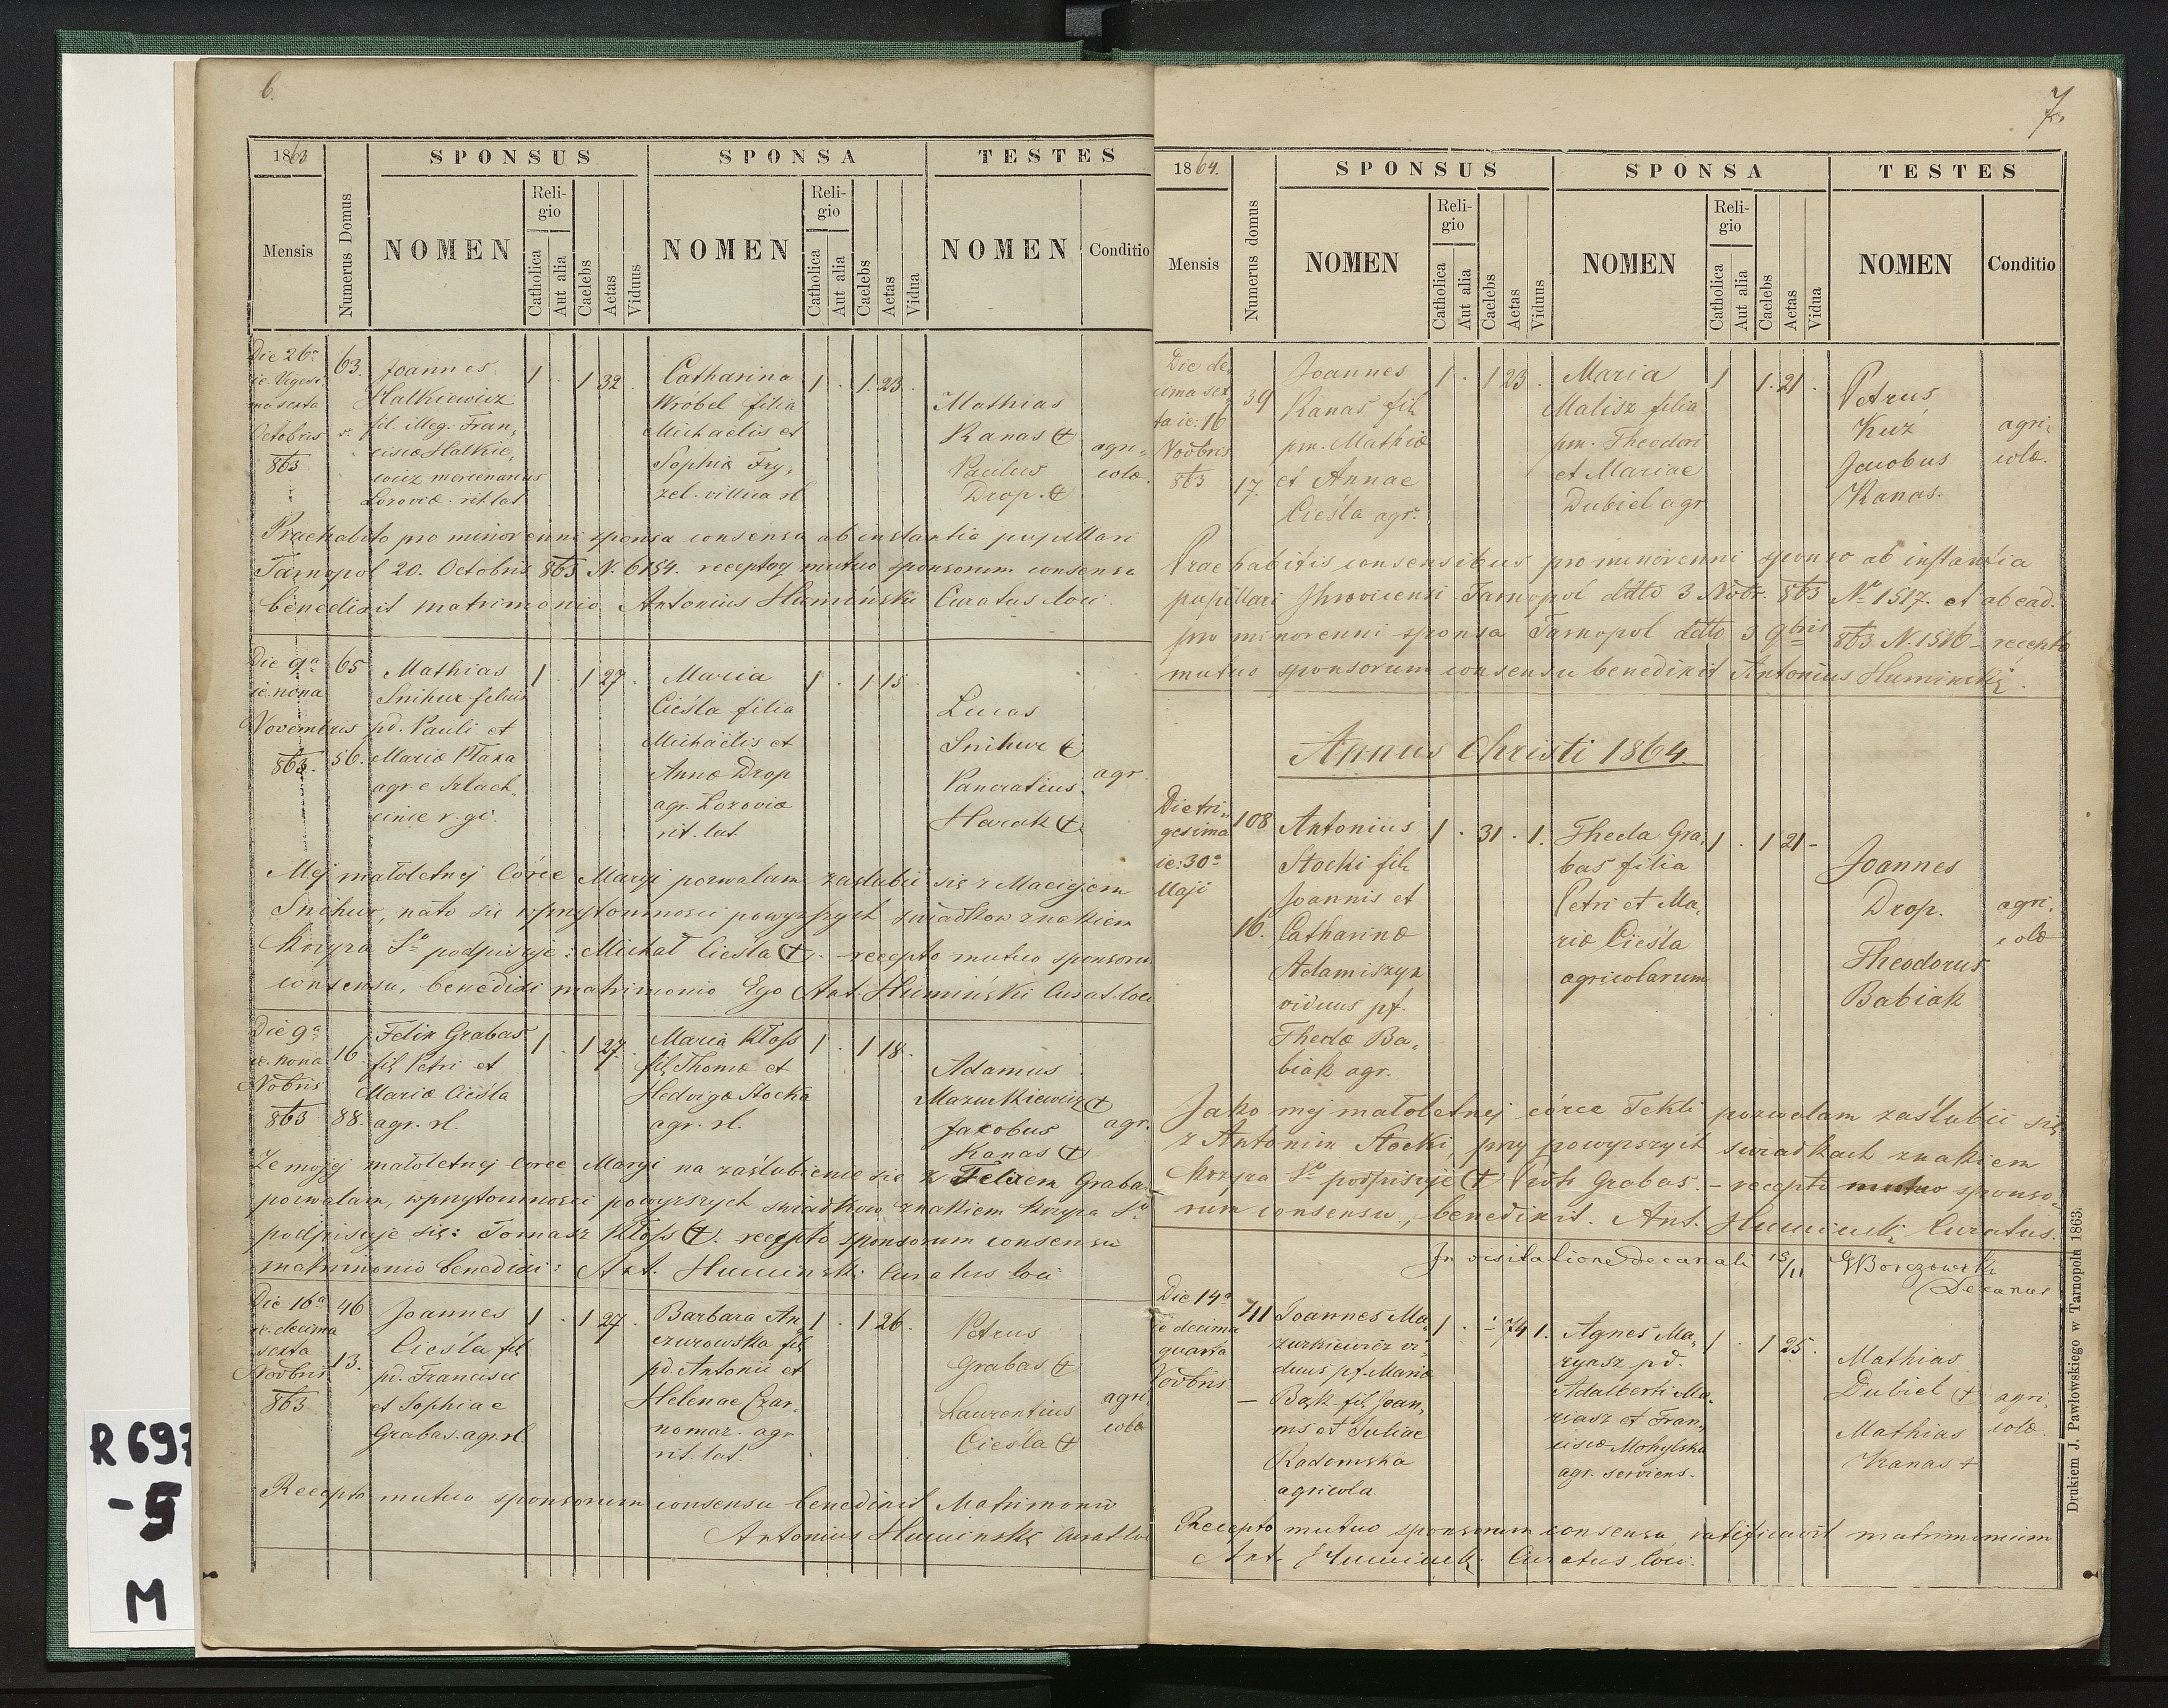 6.
1863
SPONSUS
SPONSA
TESTES
Mensis
Numerus Domus
NOMEN
Religio
Catholica
Aut alia
Caelebs
Aetas
Viduus
NOMEN
Religio
Catholica
Aut alia
Caelebs
Aetas
Vidua
NOMEN
Conditio
Die 26a
ie. Vigesi
ma sexta
Octobris
863
63.
Joannes
Halkiewicz
fil. illeg. Fran,
ciscæ Halkie,
wicz mercenarius
Lozoviæ rit. lat.
1 . 1 32 .
Catharina
Wróbel filia
Michaelis et
Sophiæ Fry,
zel. villica rl
1 . 1 23 .
Mathias
Kanas (+)
Paulus
Drop. (+)
agri,
colæ.
Praehabito pro minorenni sponsa consensu ab instantia pupillari
Tarnopol 20. Octobris 863 N. 6154. receptoq mutuo sponsorum consensu
benedixit matrimonio Antonius Humiński Curatus loci
Die 9a
ie. nona
Novembris
863.
65
56.
Mathias
Snihur filius
pd. Pauli et
Mariæ Płaza
agr. e Szlach,
cinie r. gr.
1 . 1 27 .
Maria
Cieśla filia
Michaëlis et
Annæ Drop
agr. Lozoviæ
rit. lat.
1 . 1 15 .
Lucas
Snihur (+)
Pancratius
Harak (+)
agr.
Mej małoletnej Córce Maryi pozwalam zaślubić się z Maciejem
Snihur, nato się w przytomności powyższych świadkow znakiem
krzyża So podpisuje: Michał Cieśla (+). recepto mutuo sponsorum
consensu, benedixi matrimonio Ego Ant. Humiński Curat. loci
Die 9a
ie. nona
Nobris
863
16
88.
Felix Grabas
fil Petri et
Mariæ Cieśla
agr. rl.
1 . 1 27 .
Maria Kłoss
fil Thomæ et
Hedvigæ Stocka
agr. rl.
1 . 1 18 .
Adamus
Mazurkiewicz (+)
Jakobus
Kanas (+)
agr.
Ze mojej małoletnej Corce Maryi na zaślubienie się z Felixem Graba
pozwalam, w przytomności powyrszych świadkow znakiem krzyża So
podpisuje się: Tomasz Kłoss (+). recepto sponsorum consensu
matrimonio benedixi: Ant. Humiński Curatus loci
Die 16a
ie. decima
sexta
Novbris
863
46
13.
Joannes
Cieśla fil
pd. Francisci
et Sophiae
Grabas. agr. rl.
1 . 1 27 .
Barbara An
czurowska fil
pd. Antonii et
Helenae Czar,
nomaz. agr
rit. lat.
1 . 1 26 .
Petrus
Grabas (+)
Laurentius
Cieśla (+)
agri,
colæ
Recepto mutuo sponsorum consensu benedixit Matrimonio
Antonius Humiński Curat loci
R 697
- 5
M
7.
1864.
SPONSUS
SPONSA
TESTES
Mensis
Numerus domus
NOMEN
Religio
Catholica
Aut alia
Caelebs
Aetas
Viduus
NOMEN
Religio
Catholica
Aut alia
Caelebs
Aetas
Vidua
NOMEN
Conditio
Die de,
cima sex
ta ie: 16
Novbris
863
39
17.
Joannes
Kanas fil
pm. Mathiæ
et Annae
Cieśla agr.
1 . 1 23 .
Maria
Malisz filia
pm. Theodori
et Mariae
Dubiel agr
1 1. 21 .
Petrus
Kuz
Jacobus
Kanas.
agri,
colæ.
Praehabitis consensibus pro minorenni sponso ab instantia
pupillari Tarnopol ddto 3 Novbr. 863 No 1517. et ab ead.
pro minorenni sponsa Tarnopol ddto 3 9bris 863 N. 1516 - recepto
mutuo sponsorum consensu benedixit Antonius Humiński.
Annus Christi 1864.
Die tri,
gesima
ie: 30a
Maji
108
16.
Antonius
Stocki fil
Joannis et
Catharinæ
Adamiszyn
viduus pf.
Theclæ Ba,
biak agr.
1 . 31 . 1.
Thecla Gra,
bas filia
Petri et Ma,
riæ Cieśla
agricolarum
1 . 1 21 -
Joannes
Drop.
Theodorus
Babiak
agri,
colæ
Jako mej małoletnej córce Tekli pozwalam zaślubić się
z Antonim Stocki, przy powyrszych świadkach znakiem
krzyża So podpisuje (+) Piotr Grabas. - recepto mutuo sponso,
rum consensu, benedixit. Ant. Humiński Curatus.
In visitatione Decanali 15/11 Borczowski
Decanus
Die 14a
ie decima
quarta
Novbris
41
—
Joannes Ma,
zurkiewicz vi,
duus pf. Mariæ
Bąk fil Joan,
nis et Juliae
Radomska
agricola
1 . - 74 1.
Agnes Ma,
ryasz pd.
Adalberti Ma,
riasz et Fran,
ciscæ Mohylska
agr. serviens.
1 . 1 25 .
Mathias
Dubiel +
Mathias
Kanas +
agri,
colæ.
Recepto mutuo sponsorum consensu ratificavit matrimonium
Ant. Humiński Curatus loci.
Drukiem J. Pawłowskiego w Tarnopolu 1863.